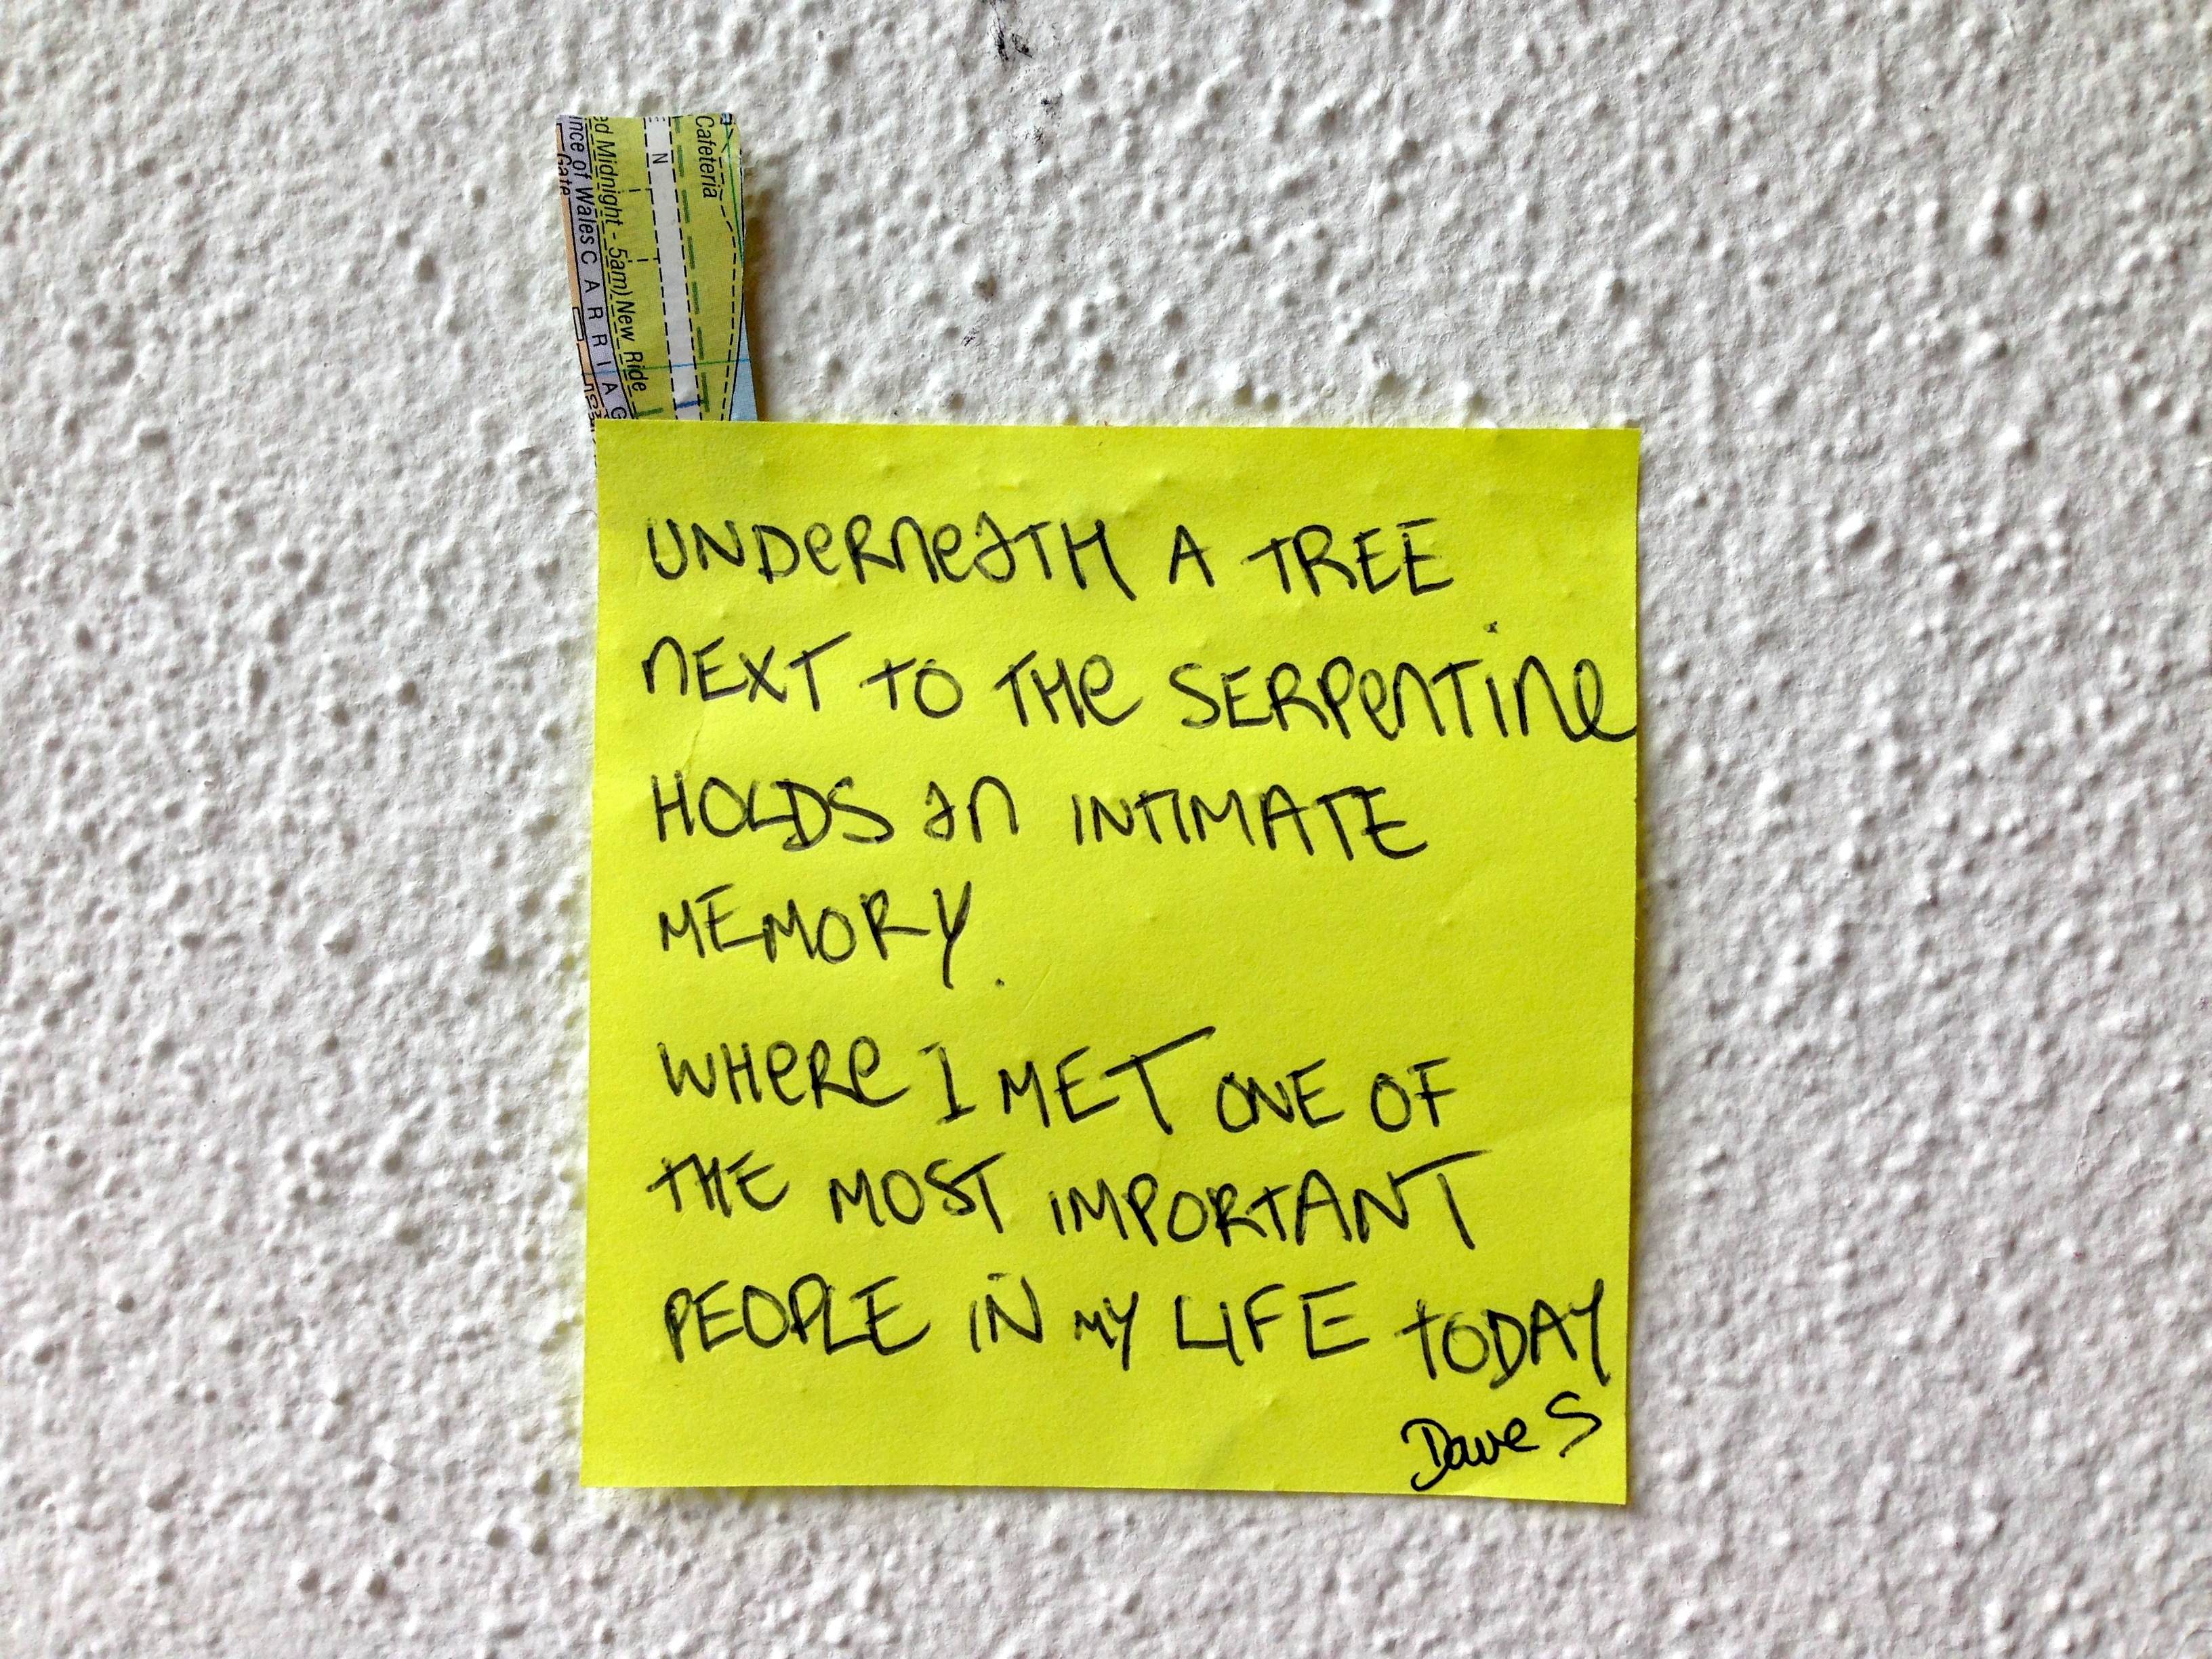 Cafeteria
N
ed Midnight - 5am) New Ride
ince of Wales CARRIAG
Gate
UNDERNEATH A TREE
NEXT TO THE SERPENTINE
HOLDS AN INTIMATE
MEMORY.
WHERE I MET ONE OF
THE MOST IMPORTANT
PEOPLE IN MY LIFE TODAY
Dave S